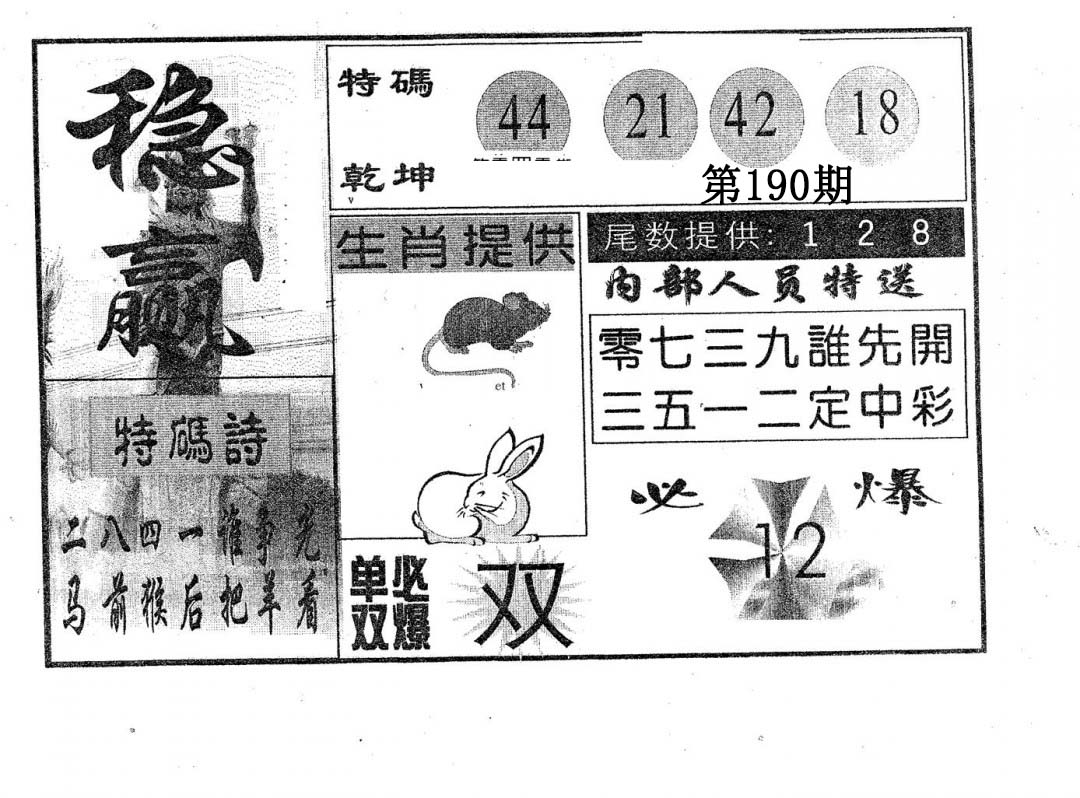 稳赢
特碼詩
二八四一谁争先
马前猴后把羊看
特碼
乾坤
44 21 42 18
第190期
生肖提供
et
单双必爆
双
尾数提供: 1 2 8
内部人员特送
零七三九誰先開
三五一二定中彩
必爆
12